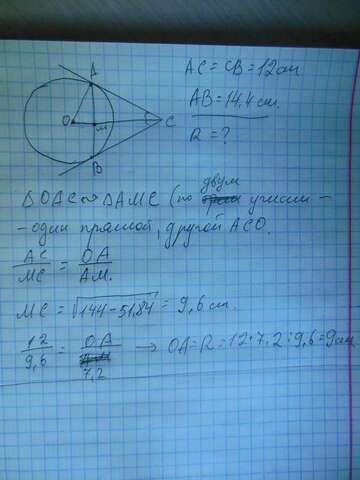 A
O
m
C
B
AC = CB = 12 см
AB = 14,4 см.
R = ?
△OAC ∾ △AMC (по двум углам -
- один прямой, другой ACO.
AC/MC = OA/AM.
MC = √144 - 51,84 = 9,6 см.
12/9,6 = OA/7,2 → OA = R = 12 · 7,2 : 9,6 = 9 см